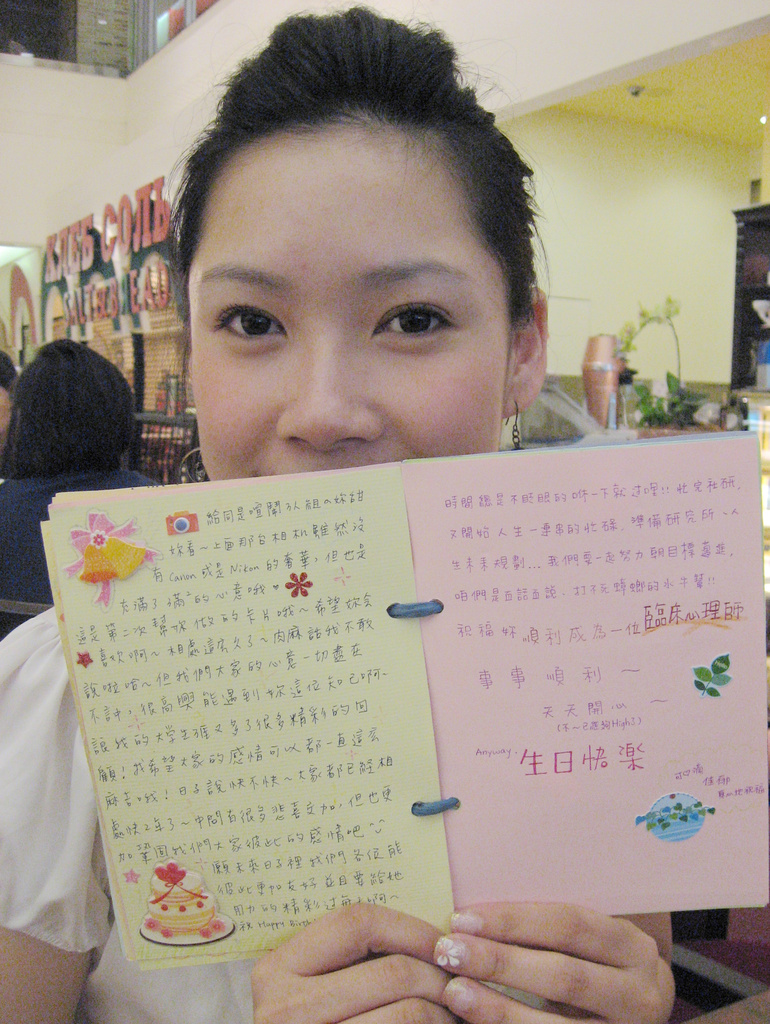 ХЛЕБ СОЛЬ
SALT&BREAD
給同是喧鬧3人組の妳甜
妳看～上面那台相机雖然沒
有Canon或是Nikon的奢華，但也是
充滿了滿²的心意哦♥
這是第二次幫妳做的卡片哦～希望妳會
喜欢啊～相處這么久了～肉麻話我不敢
說啦哈～但我們大家的心意一切盡在
不言中，很高興能遇到妳這位知己啊、
讓我的大學生涯又多了很多精彩的回
顧！我希望大家的感情可以都一直這么
麻吉哦！日子說快不快～大家都已經相
處快2年了～中間有很多悲喜交加，但也更
加鞏固我們大家彼此的感情吧^^
願未來日子裡我們各位能
彼此更加友好並且要給她
用力的精彩过每天啊～
祝Happy Birth
時間總是不眨眼的咻一下就过哩!!忙完社研，
又開始人生一連串的忙碌，準備研究所、人
生未來規劃...我們要一起努力朝目標邁進，
咱們是西話西說，打不死蟑螂的水牛幫!!
祝福妳順利成為一位臨床心理師
事事順利～
天天開心～
(不～已經夠High3)
Anyway.
生日快樂
可心滴
佳郁
真心地祝福